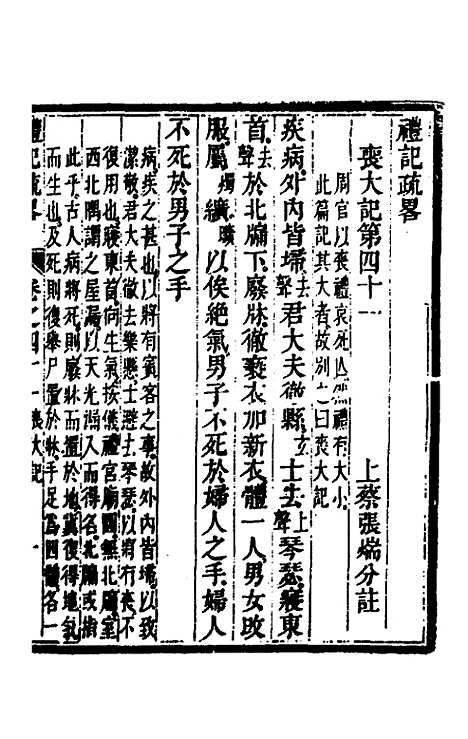 禮記疏畧
喪大記第四十一
上蔡張端分註
周官以喪禮哀死凶然禮有大小
此篇記其大者故別之曰喪大記
疾病外內皆埽去聲君大夫徹縣玄士去上聲琴瑟寢東
首去聲於北牖下廢牀徹褻衣加新衣體一人男女改
服屬燭纊曠以俟絕氣男子不死於婦人之手婦人
不死於男子之手
病疾之甚也以將有賓客之事故外內皆埽以致
潔敬君大夫徹去樂懸士避去琴瑟以將有喪不
復用也寢東首向生氣按儀禮宮廟圖無北牖室
西北隅謂之屋漏以天光漏入而得名北牖或指
此乎古人病將死則廢牀而置於地冀復得地氣
而生也及死則復舉尸置於牀手足爲四體各一
禮記疏畧
卷之四十一喪大記
一